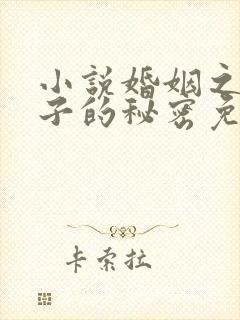 小说婚姻之
子的秘密免
卡索拉